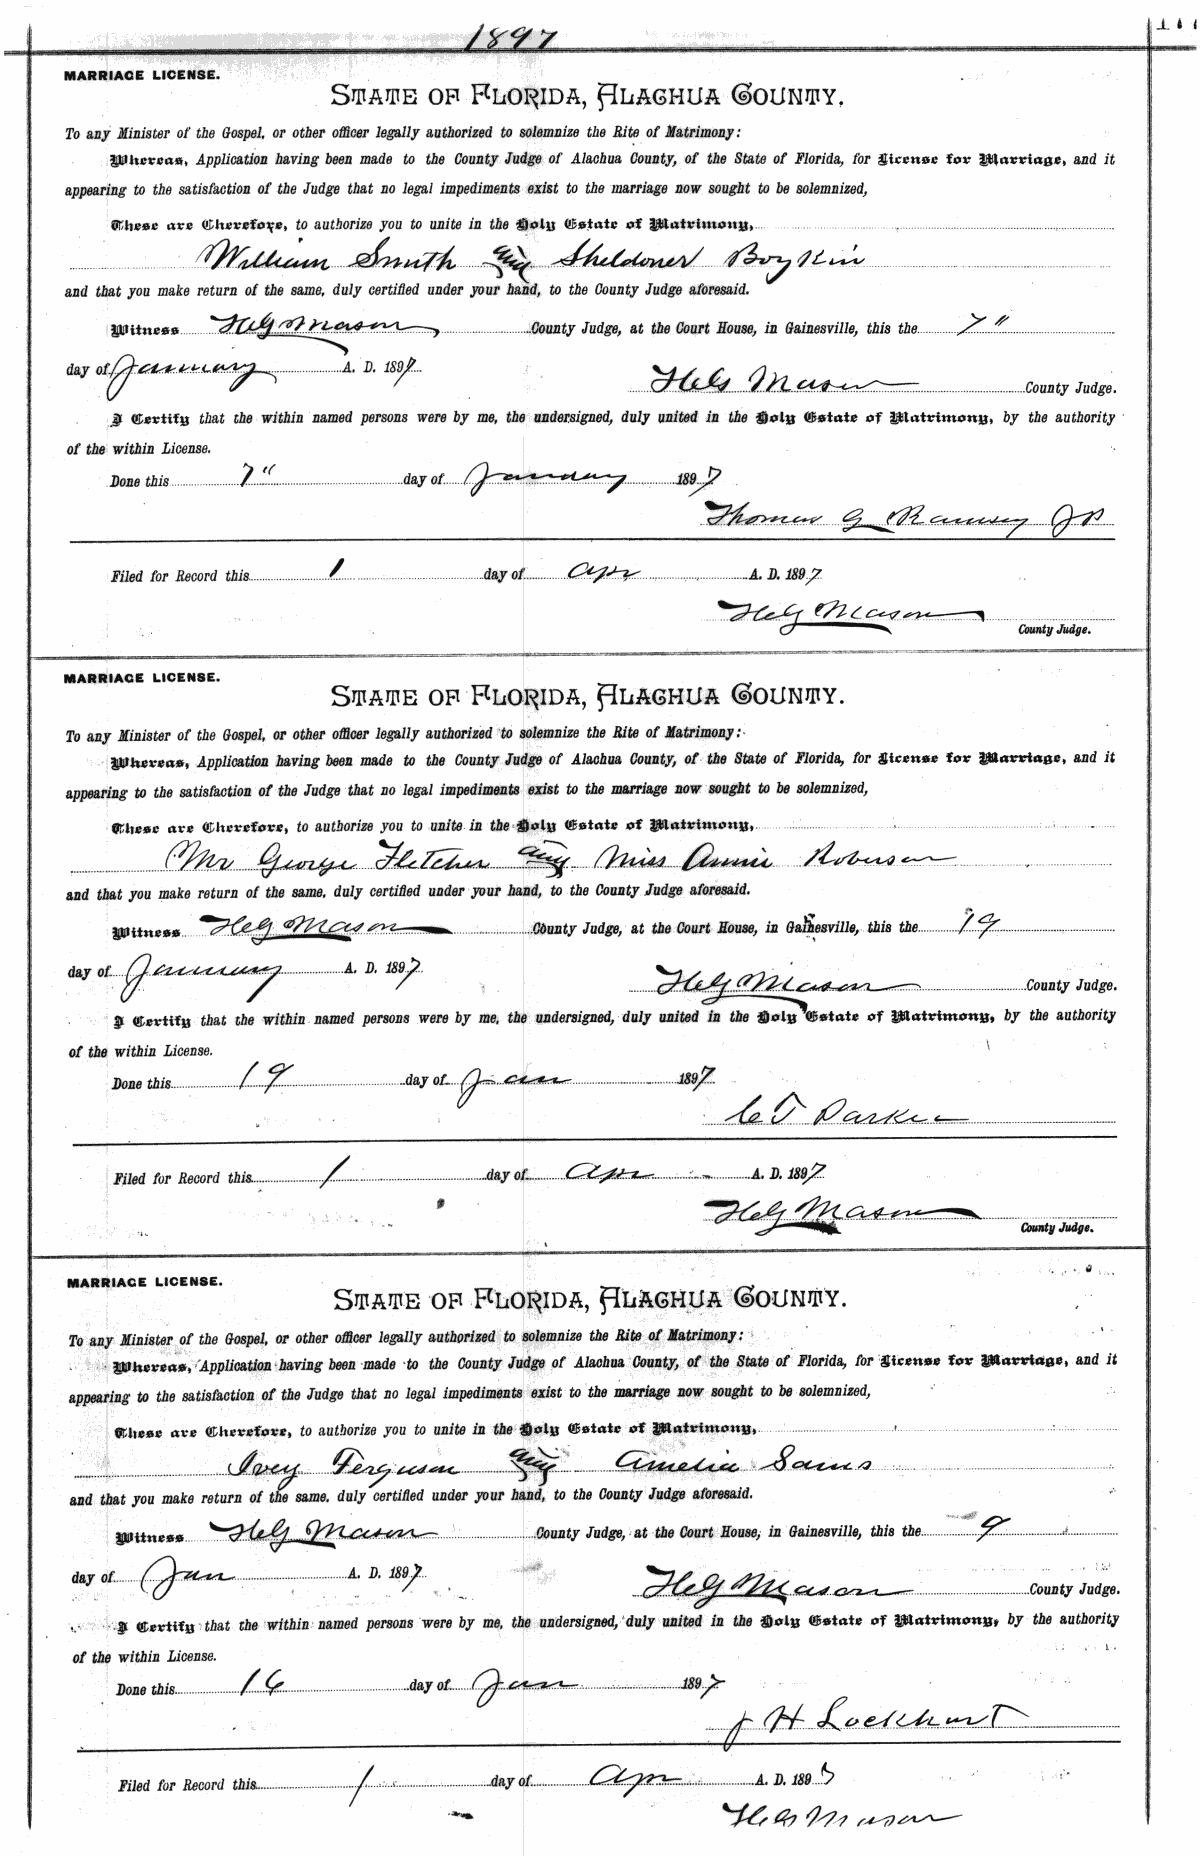 1897
MARRIAGE LICENSE.
STATE OF FLORIDA, ALACHUA COUNTY.
To any Minister of the Gospel, or other officer legally authorized to solemnize the Rite of Matrimony:
Whereas, Application having been made to the County Judge of Alachua County, of the State of Florida, for License for Marriage, and it
appearing to the satisfaction of the Judge that no legal impediments exist to the marriage now sought to be solemnized,
These are Therefore, to authorize you to unite in the Holy Estate of Matrimony,
William Smith and Sheldoner Boykin
and that you make return of the same, duly certified under your hand, to the County Judge aforesaid.
Witness HG Mason County Judge, at the Court House, in Gainesville, this the 7"
day of January A. D. 1897
HG Mason County Judge.
I Certify that the within named persons were by me, the undersigned, duly united in the Holy Estate of Matrimony, by the authority
of the within License.
Done this 7" day of January 1897
Thomas G Ramsey JP
Filed for Record this 1 day of Apr A. D. 1897
HG Mason
County Judge.
MARRIAGE LICENSE.
STATE OF FLORIDA, ALACHUA COUNTY.
To any Minister of the Gospel, or other officer legally authorized to solemnize the Rite of Matrimony:
Whereas, Application having been made to the County Judge of Alachua County, of the State of Florida, for License for Marriage, and it
appearing to the satisfaction of the Judge that no legal impediments exist to the marriage now sought to be solemnized,
These are Therefore, to authorize you to unite in the Holy Estate of Matrimony,
Mr George Fletcher and Miss Annie Roberson
and that you make return of the same, duly certified under your hand, to the County Judge aforesaid.
Witness HG Mason County Judge, at the Court House, in Gainesville, this the 19
day of January A. D. 1897
HG Mason County Judge.
I Certify that the within named persons were by me, the undersigned, duly united in the Holy Estate of Matrimony, by the authority
of the within License.
Done this 19 day of Jan 1897
C T Parker
Filed for Record this 1 day of Apr A. D. 1897
HG Mason
County Judge.
MARRIAGE LICENSE.
STATE OF FLORIDA, ALACHUA COUNTY.
To any Minister of the Gospel, or other officer legally authorized to solemnize the Rite of Matrimony:
Whereas, Application having been made to the County Judge of Alachua County, of the State of Florida, for License for Marriage, and it
appearing to the satisfaction of the Judge that no legal impediments exist to the marriage now sought to be solemnized,
These are Therefore, to authorize you to unite in the Holy Estate of Matrimony,
Ivey Ferguson and Amelia Sams
and that you make return of the same, duly certified under your hand, to the County Judge aforesaid.
Witness HG Mason County Judge, at the Court House, in Gainesville, this the 9
day of Jan A. D. 1897
HG Mason County Judge.
I Certify that the within named persons were by me, the undersigned, duly united in the Holy Estate of Matrimony, by the authority
of the within License.
Done this 16 day of Jan 1897
J H Lockhart
Filed for Record this 1 day of Apr A. D. 1897
HG Mason